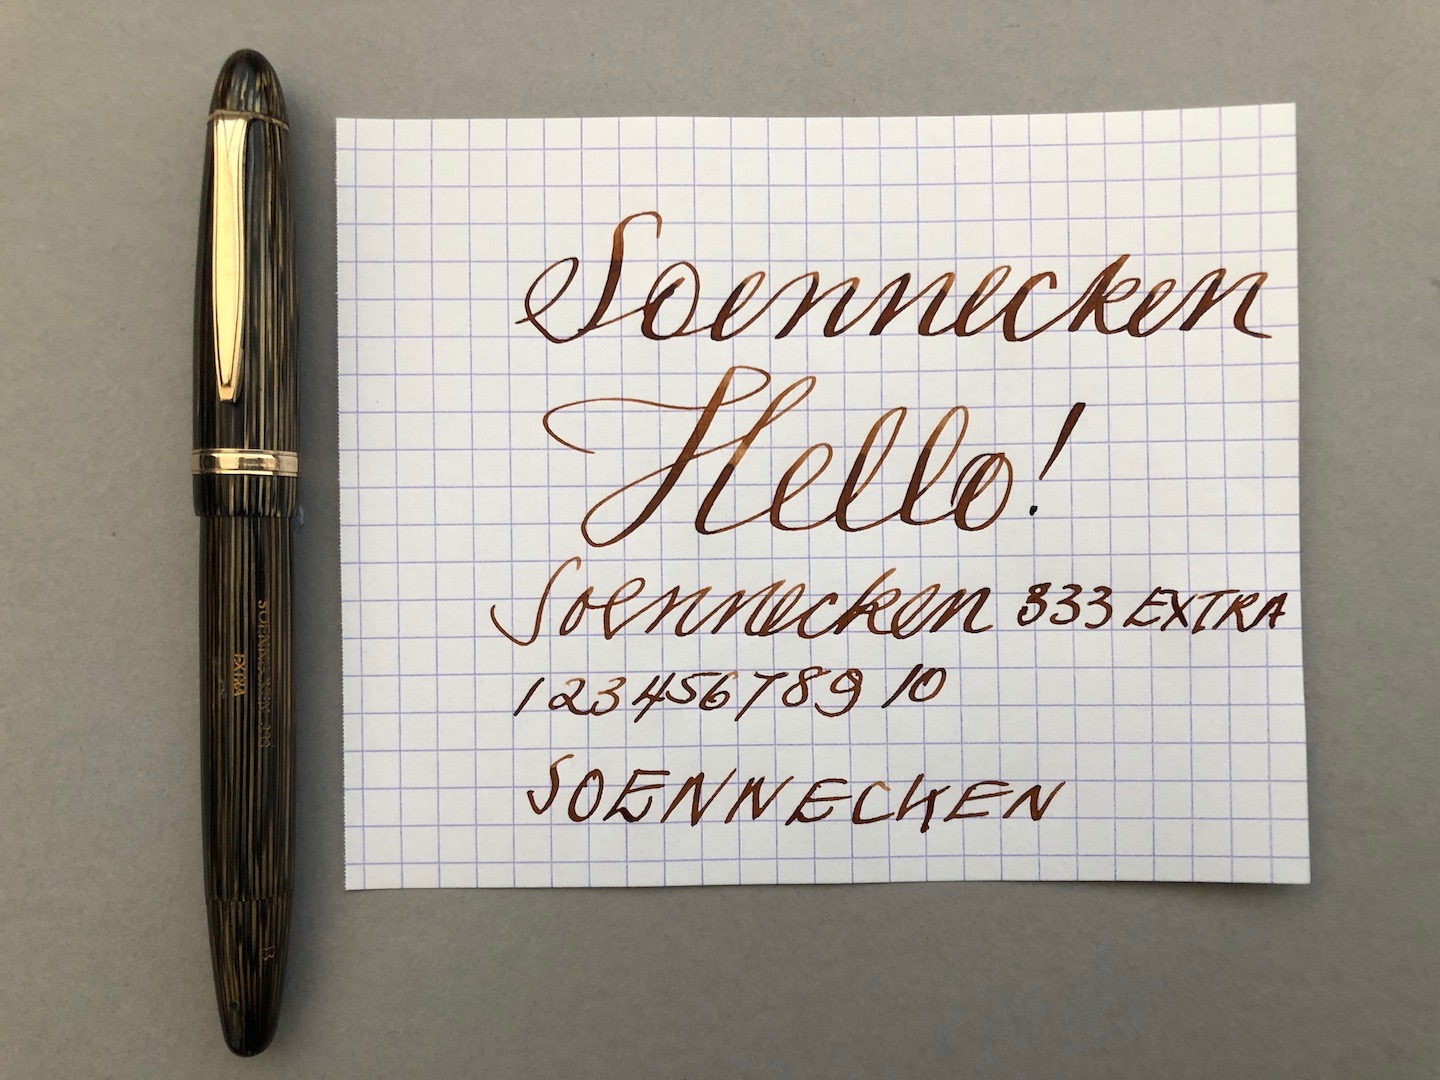 Soennecken
Hello!
Soennecken 333 EXTRA
1 2 3 4 5 6 7 8 9 10
SOENNECKEN
SOENNECKEN 333
EXTRA
13